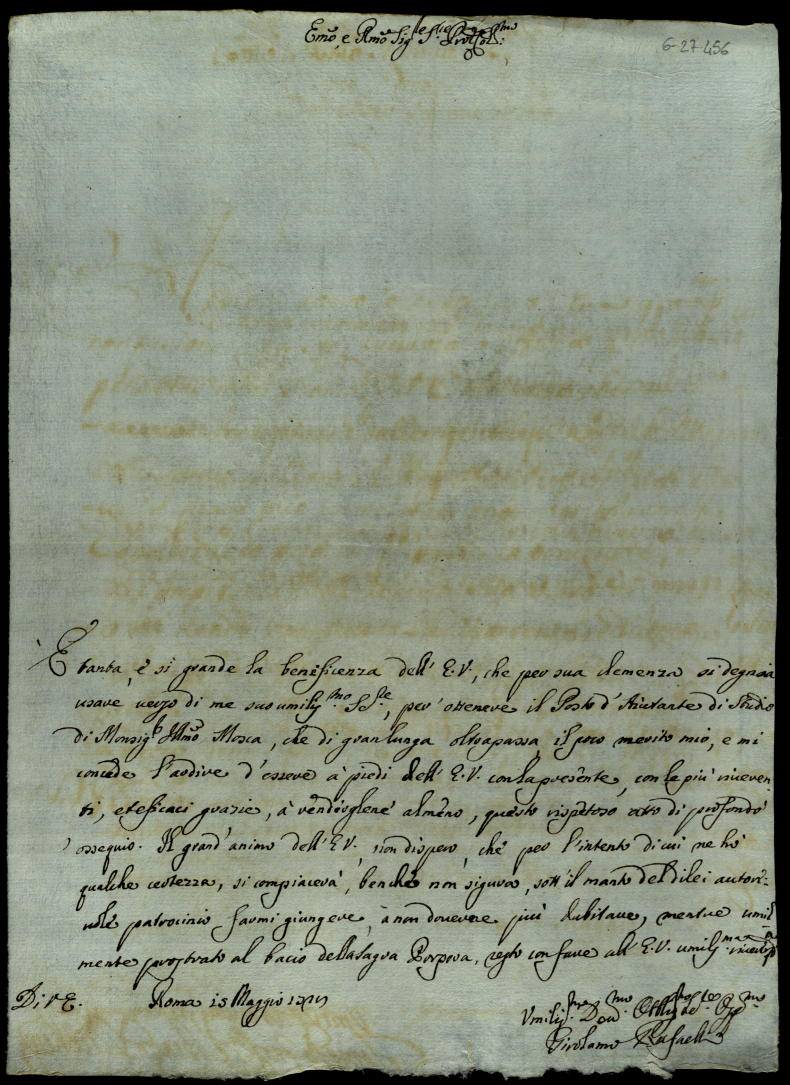 Emo, e Rmo Sigre
6-27-456
È tanta, e si grande la beneficenza dell' E.V., che per sua clemenza si degnava
usare verso di me suo umilissmo , per ottenere il Posto d'Aiutante di Studio
di Monsigr Illmo Mosca, che di gran lunga oltrapassa il poco merito mio, e mi
concede l'ardire d'essere à piedi dell' E.V. con la presente, con le più riveren-
ti, et efficaci grazie, à renderglene almeno, questo rispetoso atto di profondo
ossequio. Il grand'animo dell' E.V. non dispero, che per l'intento di cui ne hò
qualche certezza, si compiacerà, benche non sigura, sott'il manto del di lei autori-
vole patrocinio farmi giungere, à non dovere più dubitare, mentre umil
mente prostrato al bacio della Sagra Porpora, resto con fare all' E.V. umilissma
Di V. E. Roma 15 Maggio
Umilissmo Devmo
Girolamo Rafaelli